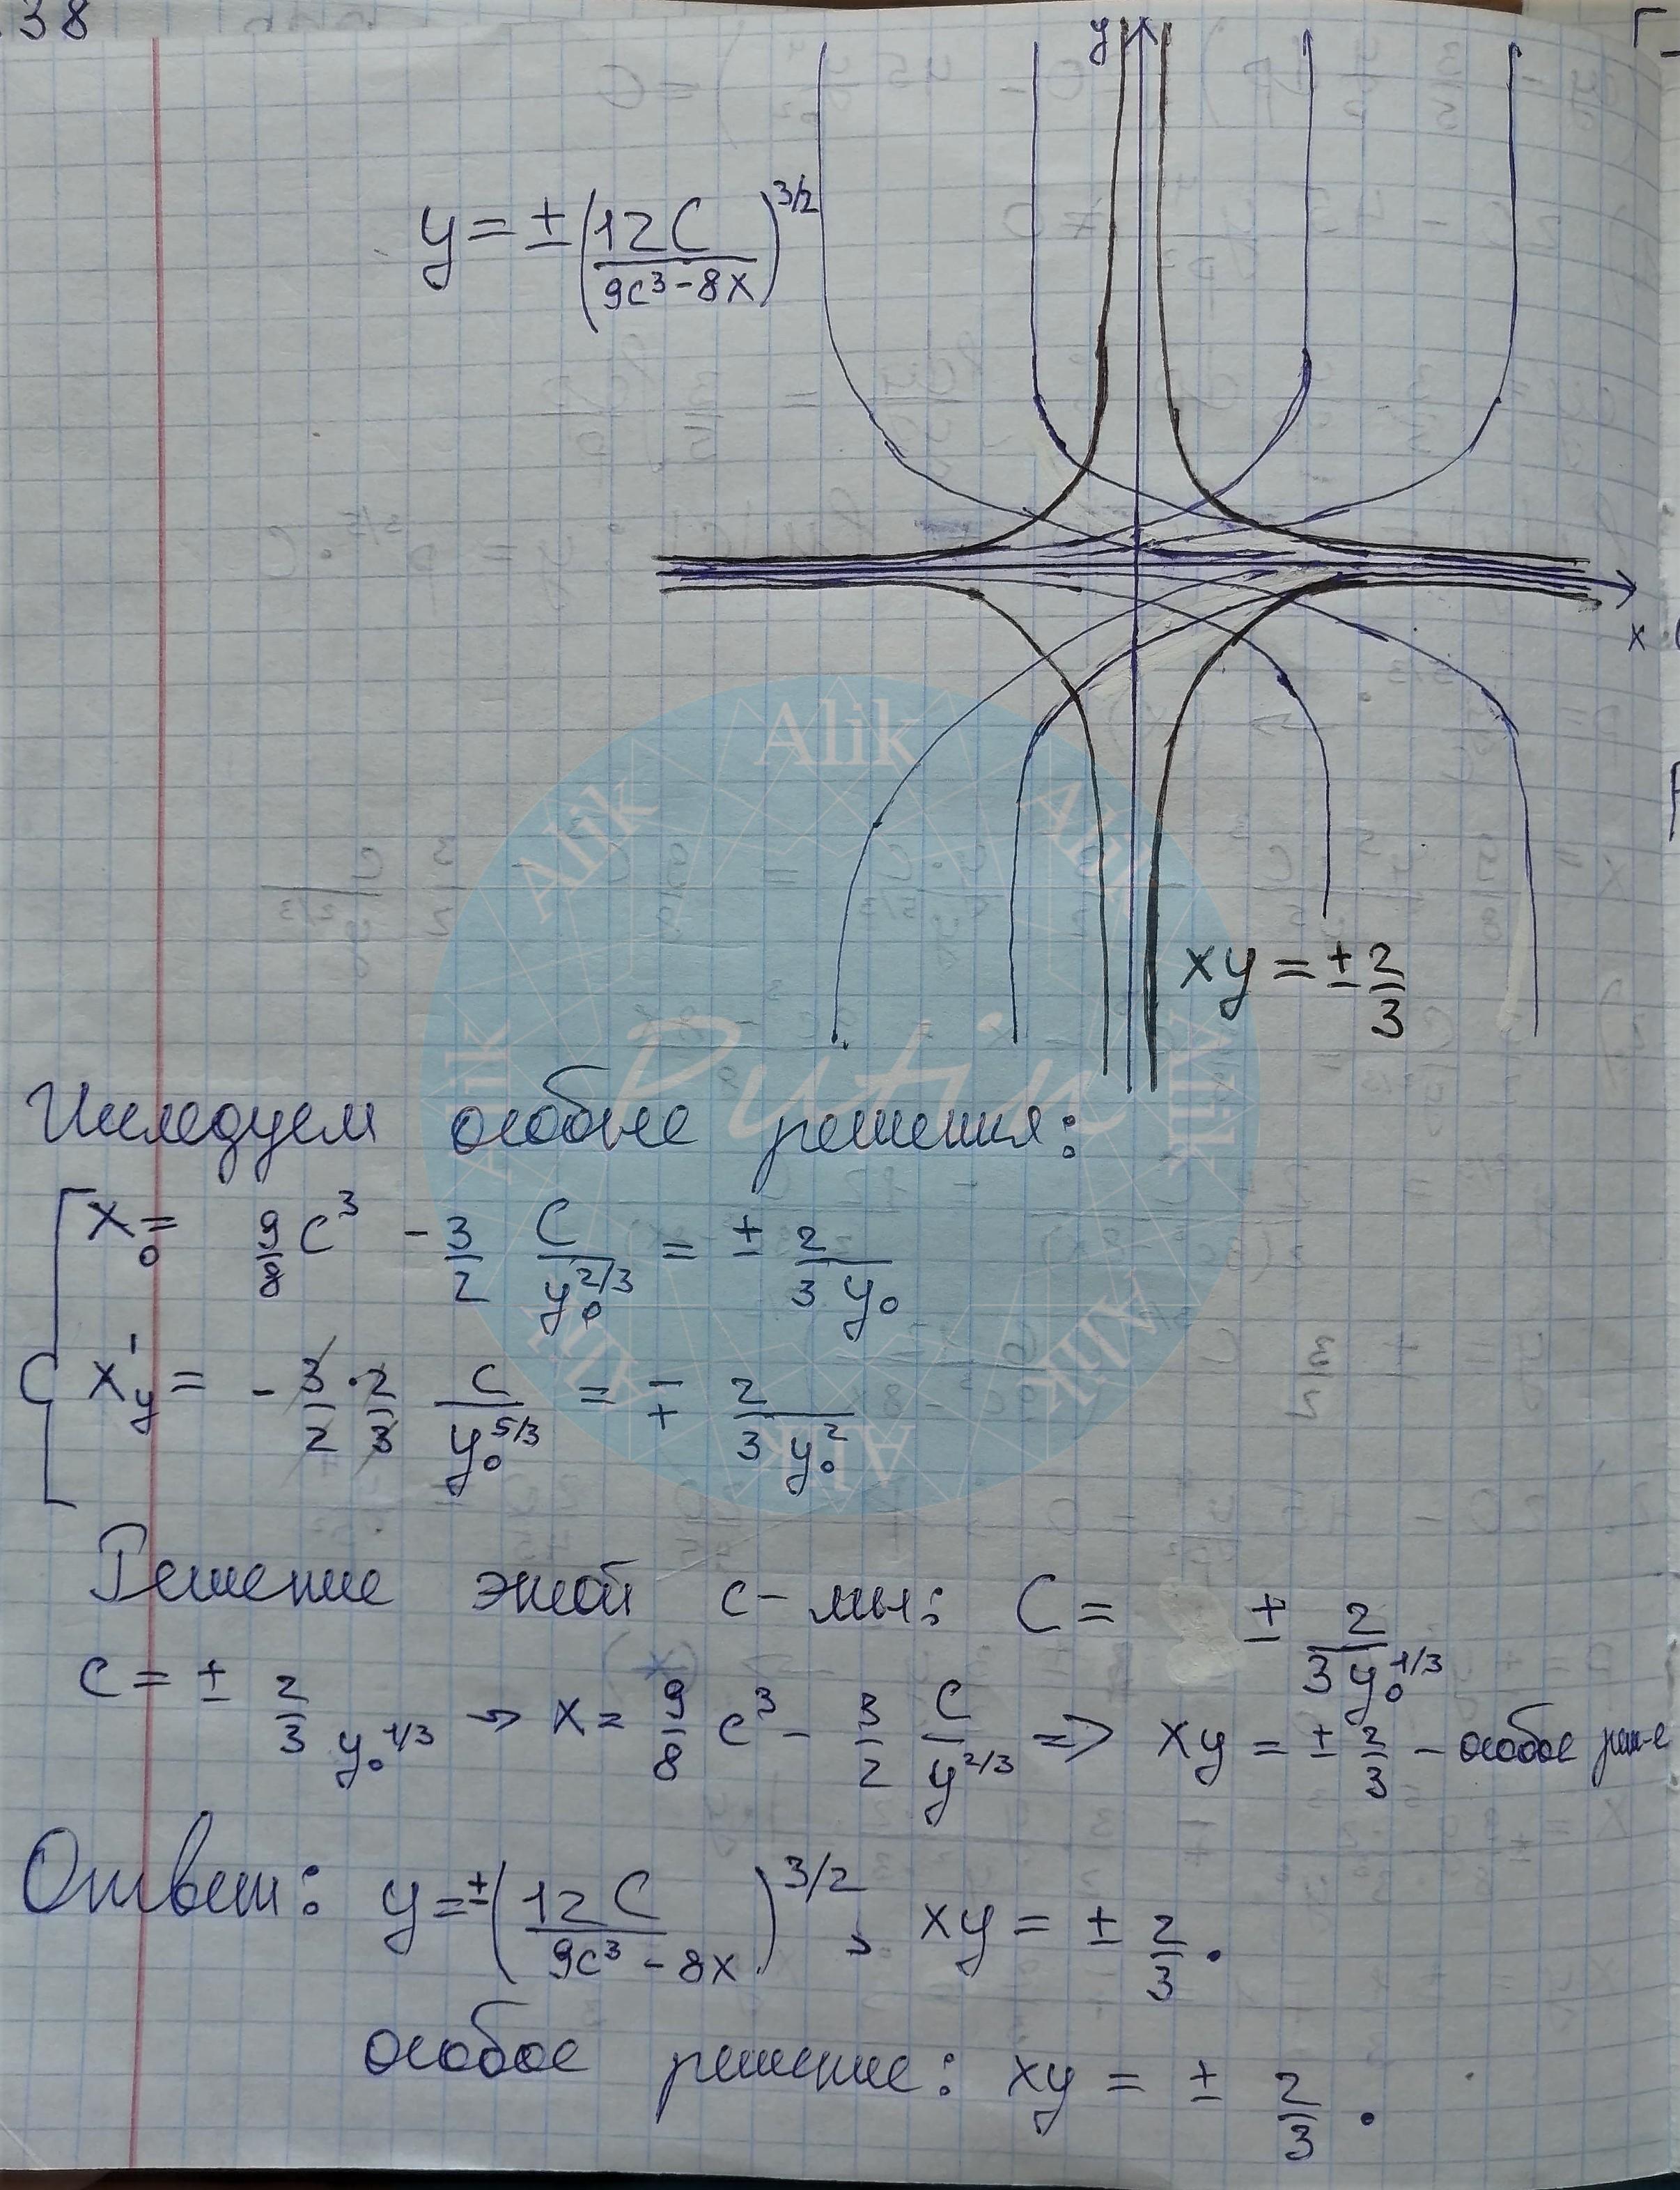 38
y
y = ± (12C / (9c³ - 8x))^(3/2)
x
xy = ± 2/3
Alik Alik Alik Alik Alik Alik Alik Alik
Putin
Исследуем особые решения:
x₀ = 9/8 c³ - 3/2 C/y₀^(2/3) = ± 2/(3y₀)
x'y = - 3/2 · 2/3 c/y₀^(5/3) = ∓ 2/(3y₀²)
Решение этой с-мы: C = ± 2/(3y₀^(1/3))
c = ± 2/3 y₀^(1/3) → x = 9/8 c³ - 3/2 C/y^(2/3) => xy = ± 2/3 - особое реш-е
Ответ: y = ± (12C / (9c³ - 8x))^(3/2), xy = ± 2/3.
особое решение: xy = ± 2/3.